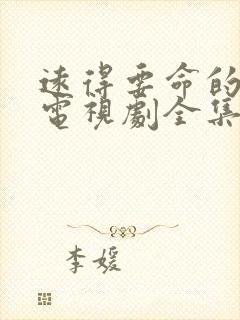 遠得要命的
電視劇全集
李媛